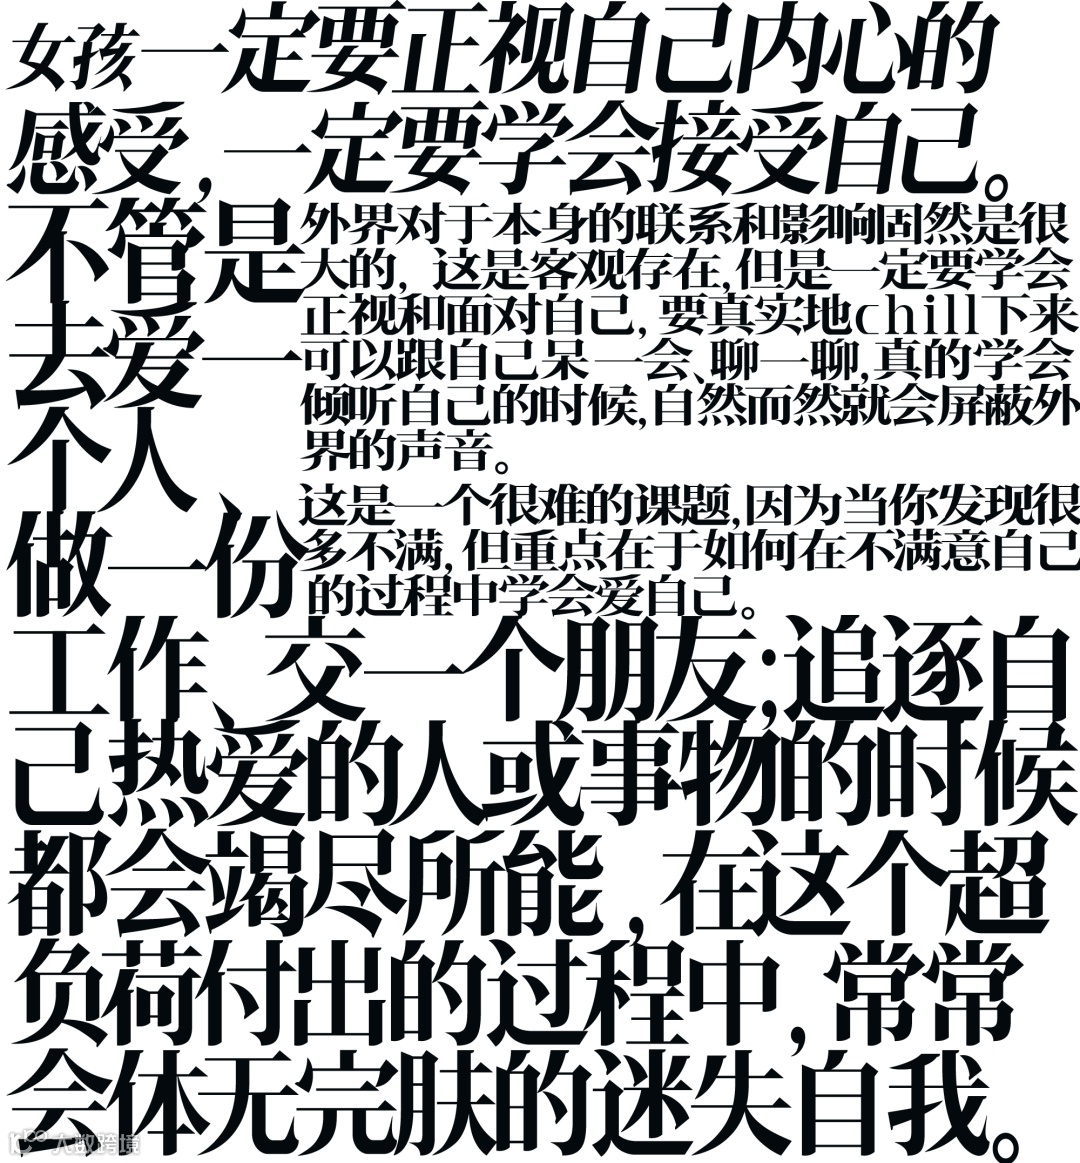 女孩一定要正视自己内心的
感受,一定要学会接受自己。
不管是
去爱一
个人、
做一份
工作、交一个朋友;追逐自
己热爱的人或事物的时候
都会竭尽所能,在这个超
负荷付出的过程中,常常
会体无完肤的迷失自我。
外界对于本身的联系和影响固然是很
大的,这是客观存在,但是一定要学会
正视和面对自己,要真实地chill下来
可以跟自己呆一会、聊一聊,真的学会
倾听自己的时候,自然而然就会屏蔽外
界的声音。
这是一个很难的课题,因为当你发现很
多不满,但重点在于如何在不满意自己
的过程中学会爱自己。
大数跨境